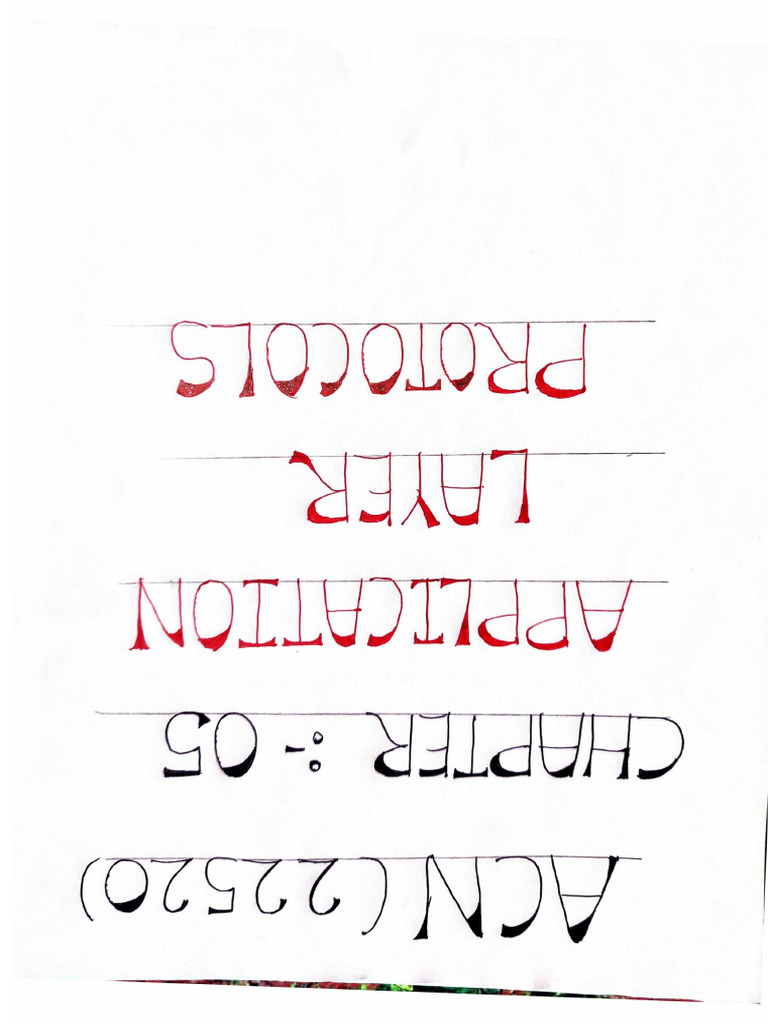 ACN (22520)
CHAPTER :- 05
APPLICATION
LAYER
PROTOCOLS